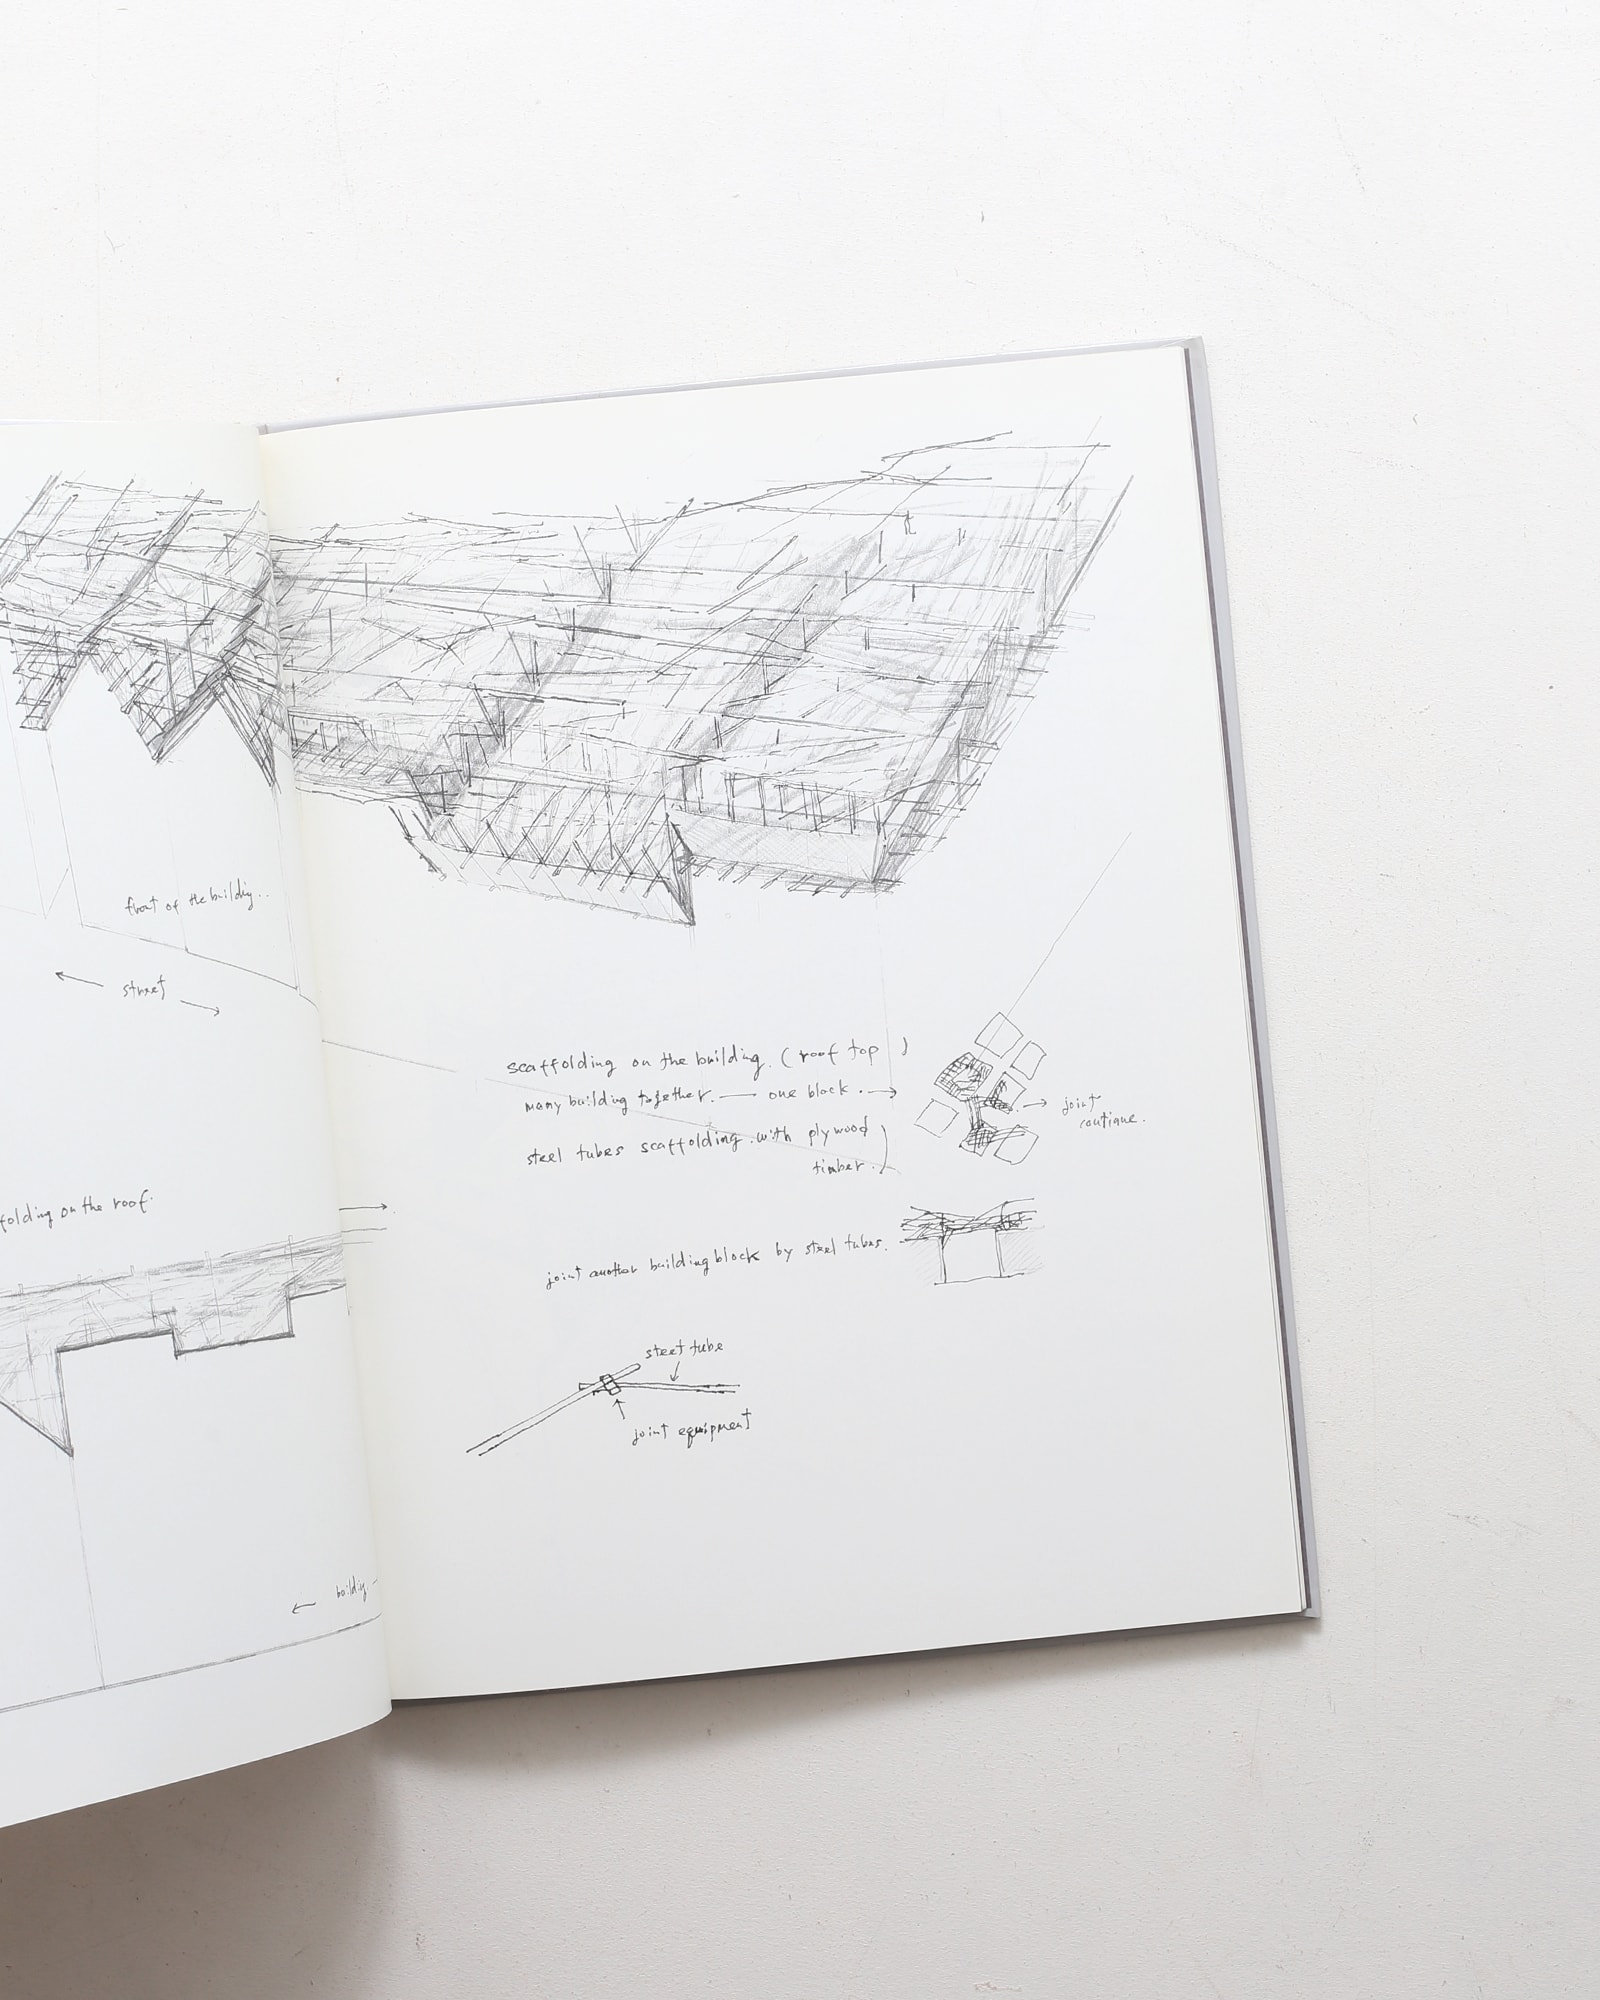 front of the building...
street
folding on the roof.
building
scaffolding on the building. (roof top)
many building together. — one block. →
steel tubes scaffolding. with plywood
timber.
joint
joint another building block by steel tubes.
steel tube
joint equipment